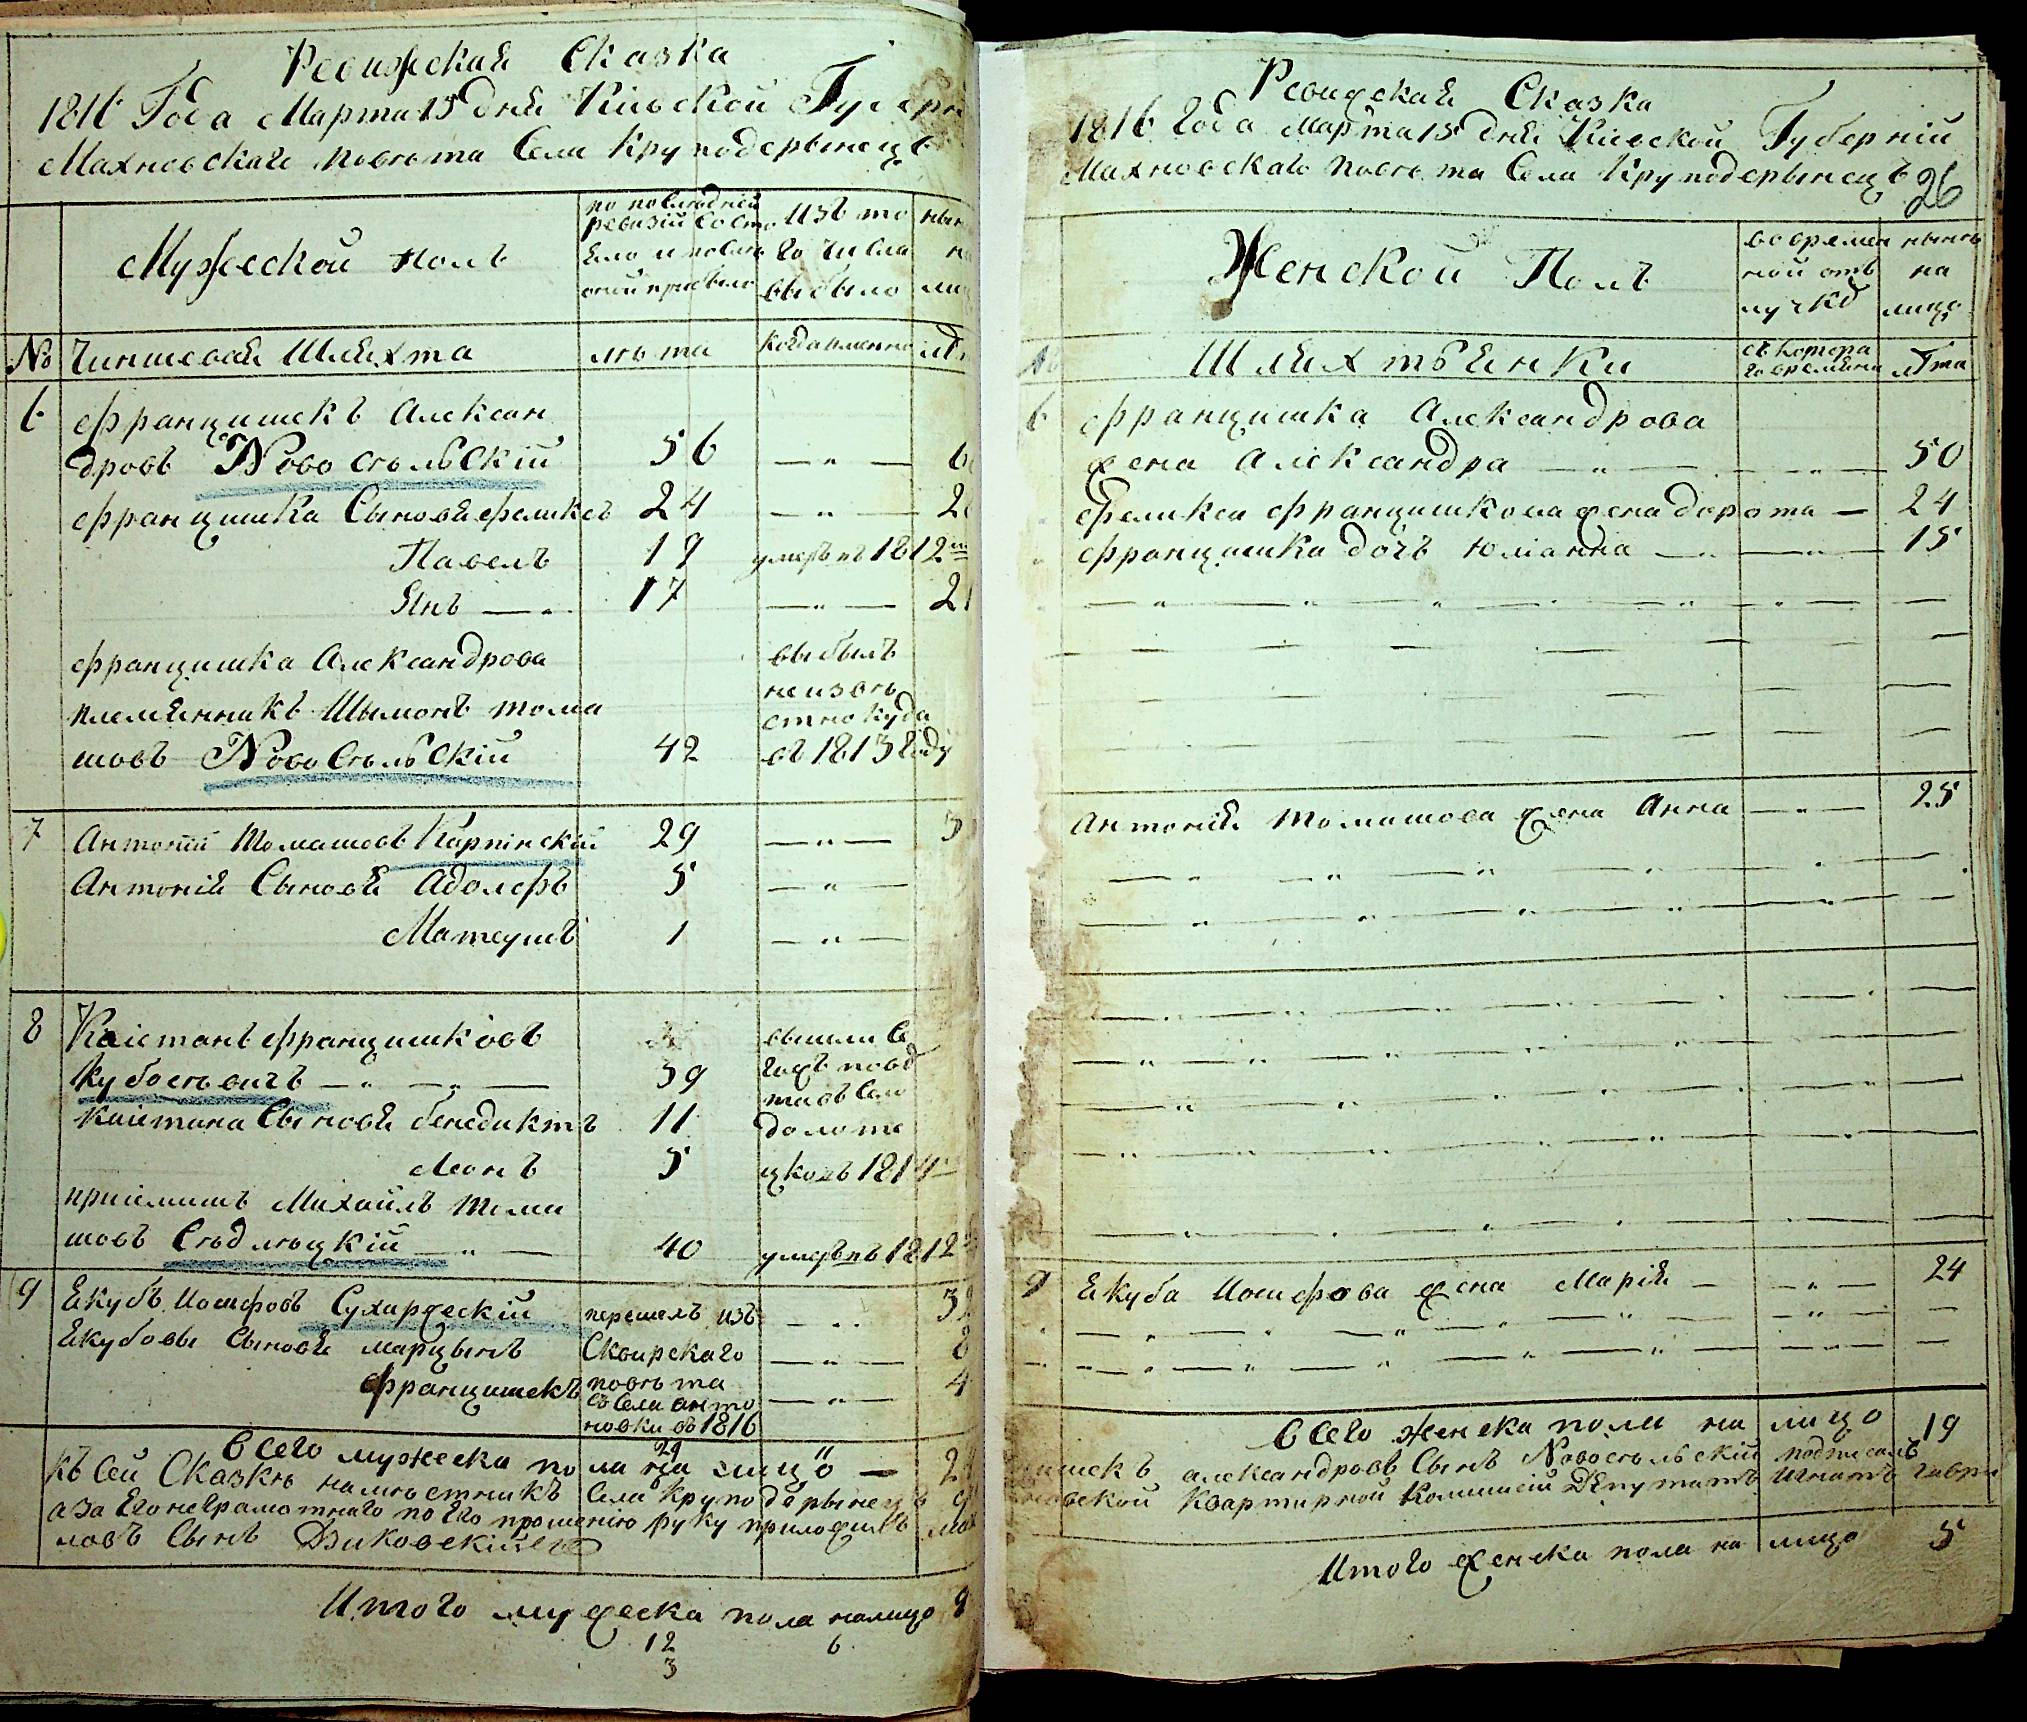 Ревижская Сказка
1816 Года Марта 15 дня Кіевской Губерн
Махновскаго повѣта Села Круподерынецъ
Мужеской полъ
по послѣдней
ревизіи состо
яло и послѣ
оной прибыло
Изъ то
го числа
выбыло
нын
на
лиц
№ Чиншевая Шляхта
лѣта
когда именно
6 Францишекъ Алексан
дровъ Новосѣльскій 56 —„— 6
Францишка Сыновя феликсъ 24 —„— 2
Павелъ 19 умеръ въ 1812
Янъ —„ 17 —„— 2
Францишка Александрова
племянникъ Шымонъ тома
шовъ Новосѣльскій 42
выбылъ
неизвѣ
стно куда
въ 1813 году
7 Антоній Томашовъ Карпінскій 29 —„— 3
Антонія Сыновя Адолефъ 5 —„—
Матеушъ 1 —„—
8 Каіетанъ францишковъ
Кубосѣвичъ —„—„— 39
Каіетана Сыновя бенедиктъ 11
Леонъ 5
вышли
повѣ
та въ село
1814
пріемышъ Михайлъ тома
шовъ Сѣдлѣцкій —„— 40 умеръ въ 1812
9 Якубъ Іосифовъ Сухаржескій —„ 3
Якубовы Сыновя марцынъ —„— 8
францишекъ —„— 4
перешелъ изъ
Сквирскаго
повѣта
съ Села Анто
новки въ 1816
Всего мужеска пола на лицо — 2
29
къ Сей Сказкѣ намѣстникъ Села Круподерынецъ
а за Его неграмотнаго по Его прошенію руку приложилъ
ловъ Сынъ Диковскій
Итого мужеска пола налицо 9
12 6
3
Ревижская Сказка
1816 Года Марта 15 дня Кіевской Губерній
Махновскаго повѣта Села Круподерынецъ
26
Женской Полъ
во времен
ной отъ
лучкѣ
нынѣ
на
лицо
№ Шляхтѣянки
съ котора
го времяни
лѣта
6 Францишка Александрова
жена Александра —„— —„— 50
Феликса францишкова жена дорота — 24
Францишка дочь юліанна —„— 15
Антонія томашова жена Анна —„— 25
9 Якуба Іосифова жена Марія — —„— 24
Всего женска пола на лицо 19
ишекъ александровъ Сынъ Новосѣльскій подписалъ
новской Квартирной Коммисіи Депутатъ Игнатъ Гаври
Итого женска пола на лицо 5